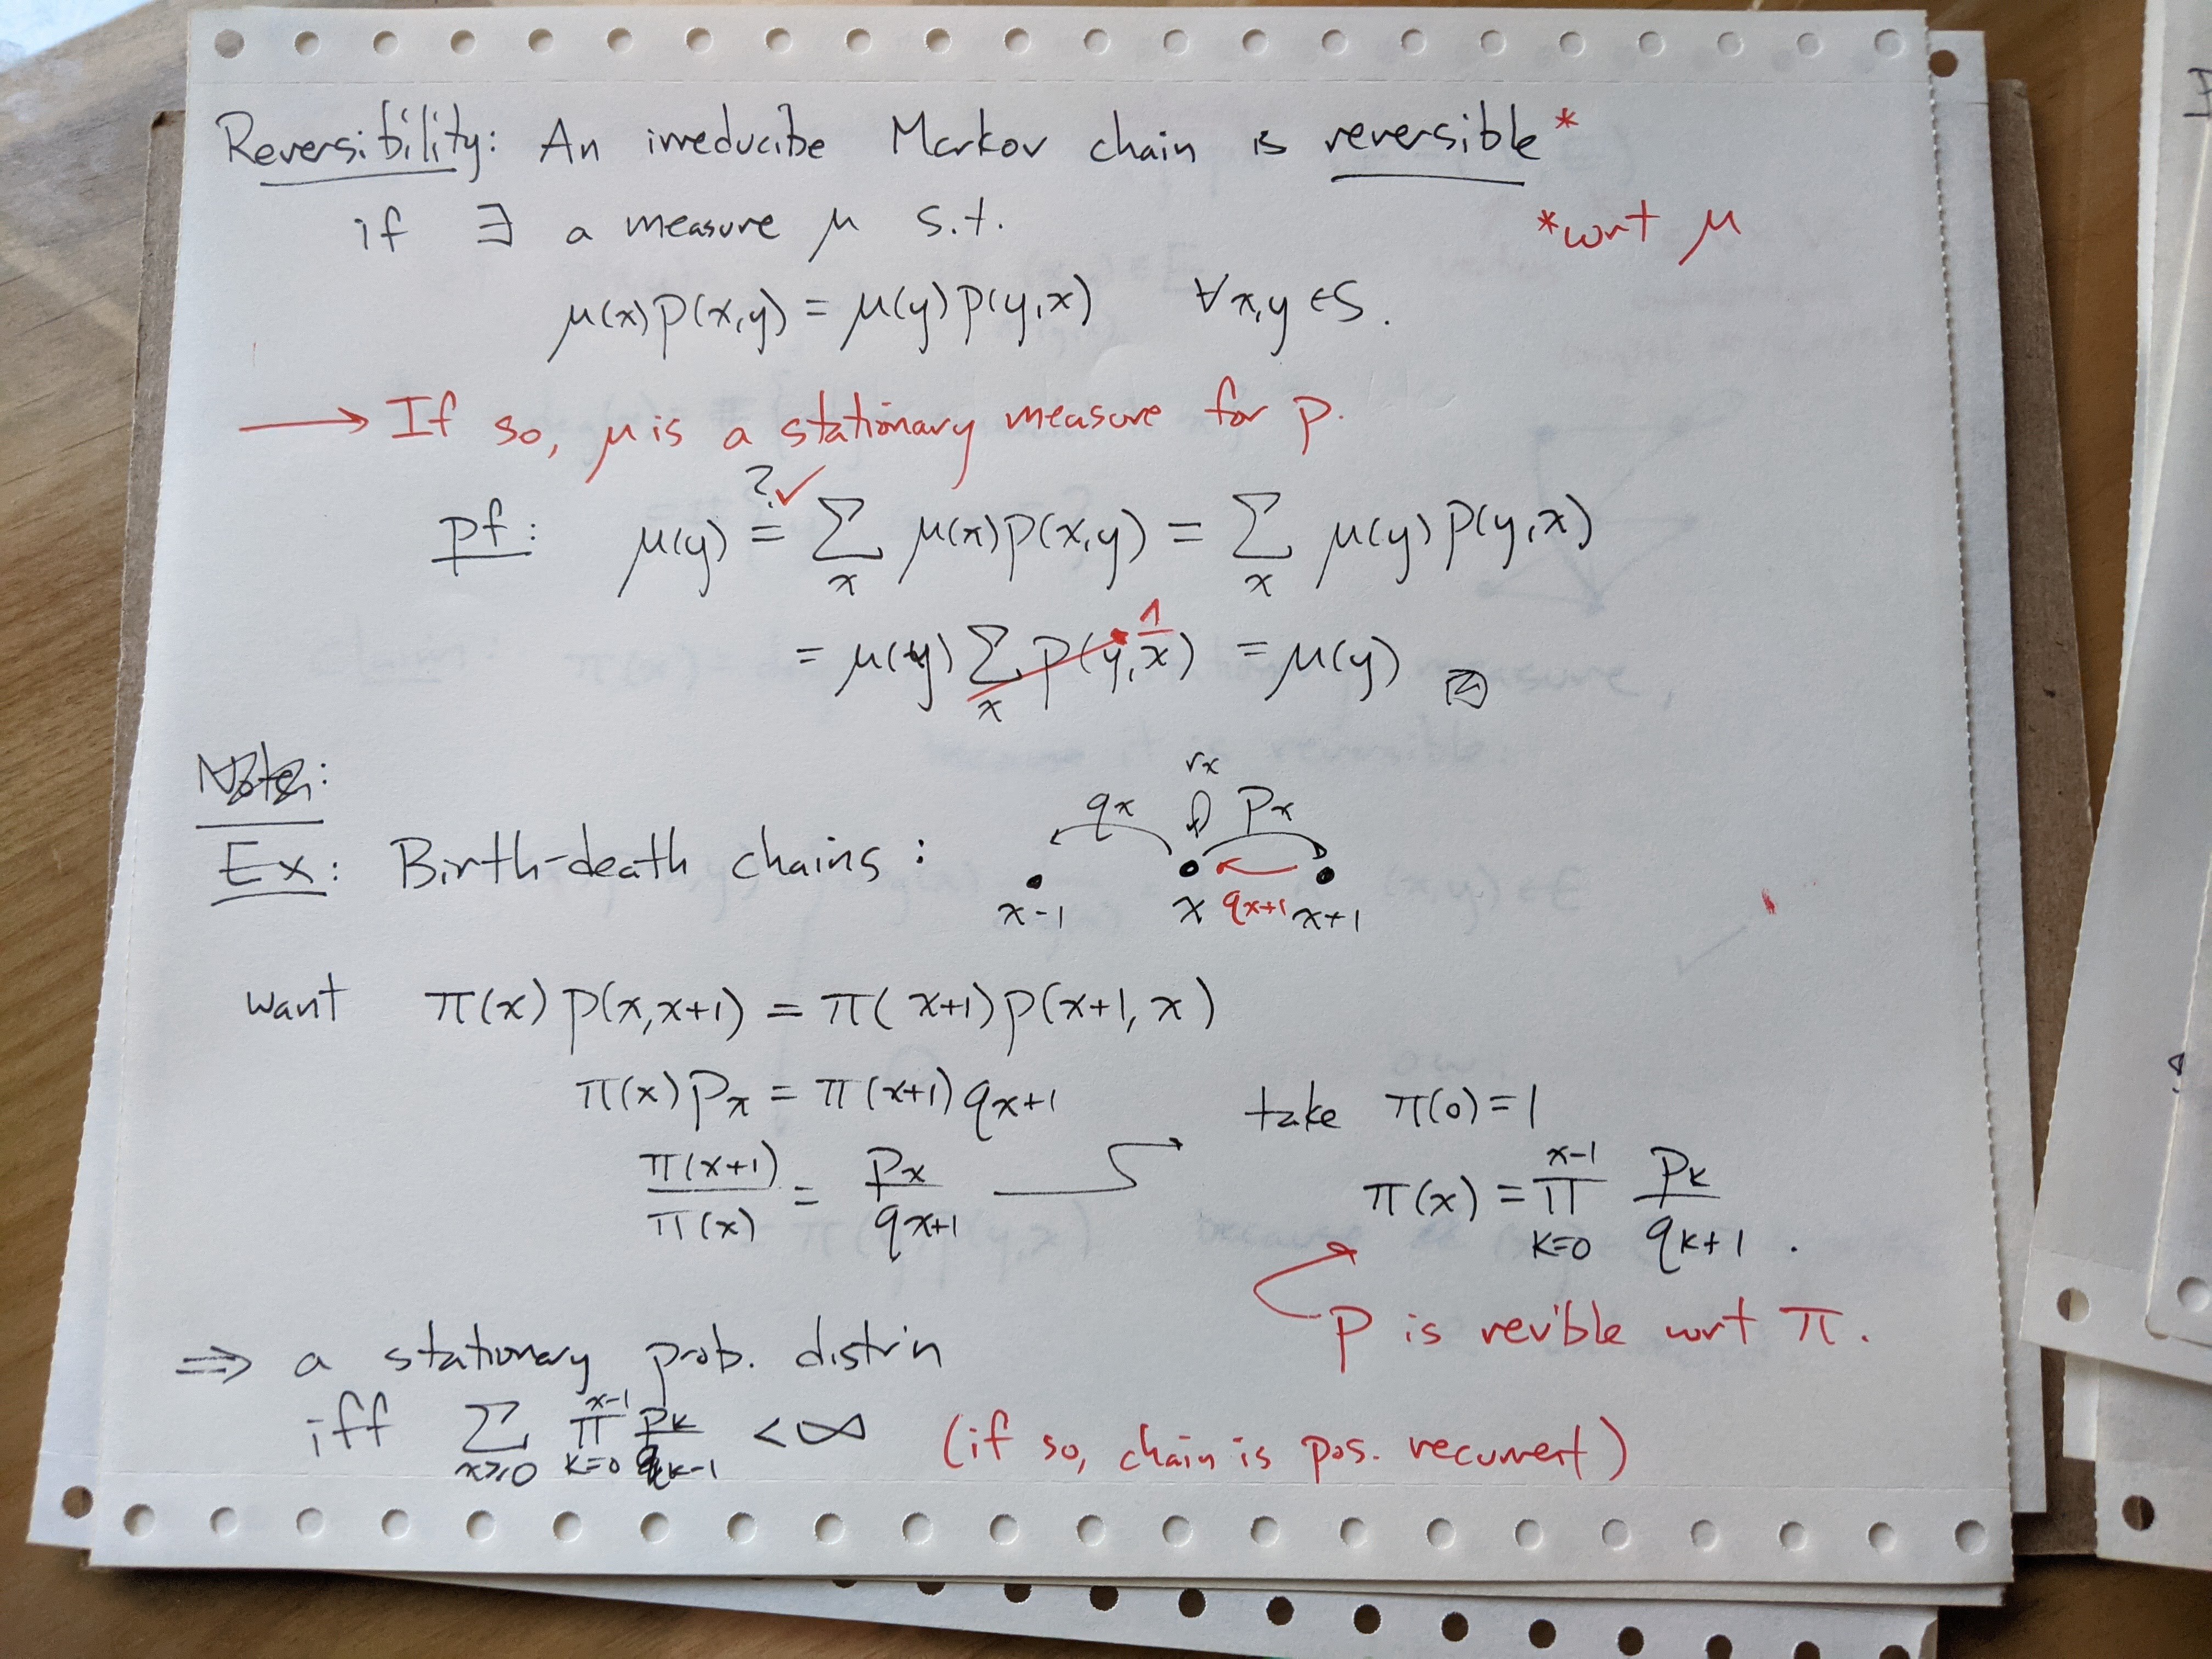 Reversibility: An irreducibe Markov chain is reversible*
if ∃ a measure μ s.t.
*wrt μ
μ(x)p(x,y) = μ(y)p(y,x) ∀x,y ∈ S.
→ If so, μ is a stationary measure for p.
pf: μ(y) =?✓ Σ_x μ(x)p(x,y) = Σ_x μ(y)p(y,x)
= μ(y) Σ_x p(y,x) 1 = μ(y)
Note:
Ex: Birth-death chains:
r_x
q_x p_x
x-1 x q_{x+1} x+1
want π(x)p(x,x+1) = π(x+1)p(x+1,x)
π(x)p_x = π(x+1)q_{x+1}
take π(0)=1
π(x+1)/π(x) = p_x/q_{x+1}
π(x) = ∏_{k=0}^{x-1} p_k/q_{k+1}.
p is rev'ble wrt π.
⇒ a stationary prob. distr'n
iff Σ_{x≥0} ∏_{k=0}^{x-1} p_k/q_{k-1} < ∞ (if so, chain is pos. recurrent)